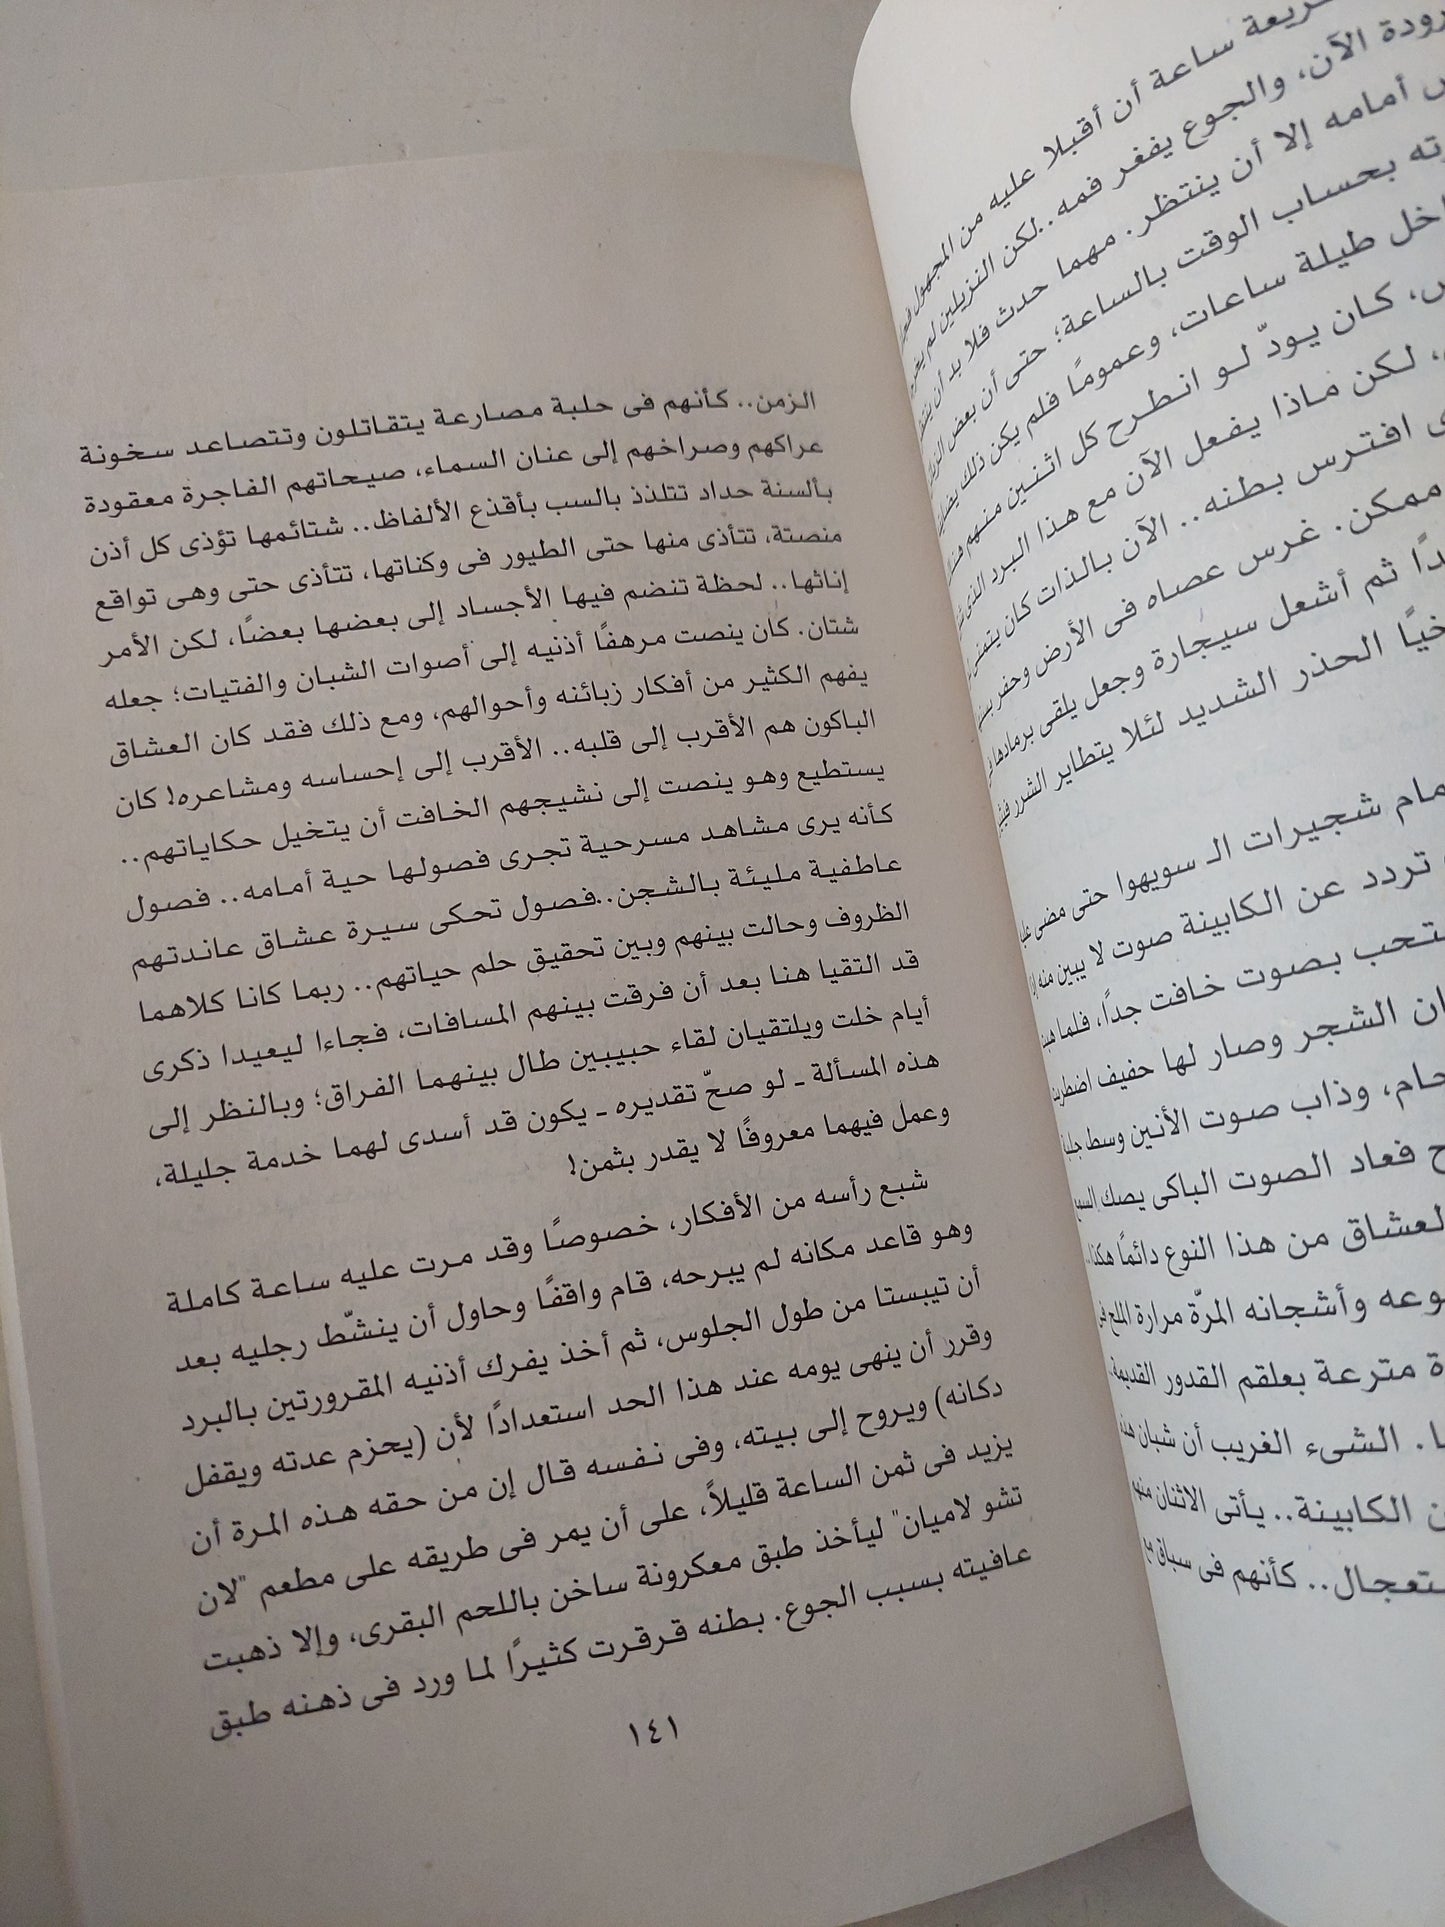 ساعة أن أقبلا عليه من المجهول
الآن، والجوع يفغر فمه..لكن النزيلين لم
أمامه إلا أن ينتظر. مهما حدث فلا بد أن
بحساب الوقت بالساعة؛ حتى أن بعض
طيلة ساعات، وعمومًا فلم يكن ذلك
كان يودّ لو انطرح كل اثنين منهم
لكن ماذا يفعل الآن مع هذا البرد الذى
افترس بطنه.. الآن بالذات كان يتمنى
ممكن. غرس عصاه فى الأرض وحفر
ثم أشعل سيجارة وجعل يلقى برمادها
الحذر الشديد لئلا يتطاير الشرر
شجيرات الـ سويهوا حتى مضى
تردد عن الكابينة صوت لا يبين منه
بصوت خافت جدًا، فلما
الشجر وصار لها حفيف
وذاب صوت الأنين وسط
فعاد الصوت الباكى يصك السمع
العشاق من هذا النوع دائمًا هكذا..
وأشجانه المرّة مرارة الملح فى
مترعة بعلقم القدور القديمة.
الشىء الغريب أن شبان هذه
الكابينة.. يأتى الاثنان منهم
كأنهم فى سباق مع
الزمن.. كأنهم فى حلبة مصارعة يتقاتلون وتتصاعد سخونة
عراكهم وصراخهم إلى عنان السماء، صيحاتهم الفاجرة معقودة
بألسنة حداد تتلذذ بالسب بأقذع الألفاظ.. شتائمها تؤذى كل أذن
منصتة، تتأذى منها حتى الطيور فى وكناتها، تتأذى حتى وهى تواقع
إناثها.. لحظة تنضم فيها الأجساد إلى بعضها بعضًا، لكن الأمر
شتان. كان ينصت مرهفًا أذنيه إلى أصوات الشبان والفتيات؛ جعله
يفهم الكثير من أفكار زبائنه وأحوالهم، ومع ذلك فقد كان العشاق
الباكون هم الأقرب إلى قلبه.. الأقرب إلى إحساسه ومشاعره! كان
يستطيع وهو ينصت إلى نشيجهم الخافت أن يتخيل حكاياتهم..
كأنه يرى مشاهد مسرحية تجرى فصولها حية أمامه.. فصول
عاطفية مليئة بالشجن..فصول تحكى سيرة عشاق عاندتهم
الظروف وحالت بينهم وبين تحقيق حلم حياتهم.. ربما كانا كلاهما
قد التقيا هنا بعد أن فرقت بينهم المسافات، فجاءا ليعيدا ذكرى
أيام خلت ويلتقيان لقاء حبيبين طال بينهما الفراق؛ وبالنظر إلى
هذه المسألة ـ لو صحّ تقديره ـ يكون قد أسدى لهما خدمة جليلة،
وعمل فيهما معروفًا لا يقدر بثمن!
شبع رأسه من الأفكار، خصوصًا وقد مرت عليه ساعة كاملة
وهو قاعد مكانه لم يبرحه، قام واقفًا وحاول أن ينشّط رجليه بعد
أن تيبستا من طول الجلوس، ثم أخذ يفرك أذنيه المقرورتين بالبرد
وقرر أن ينهى يومه عند هذا الحد استعدادًا لأن (يحزم عدته ويقفل
دكانه) ويروح إلى بيته، وفى نفسه قال إن من حقه هذه المرة أن
يزيد فى ثمن الساعة قليلاً، على أن يمر فى طريقه على مطعم "لان
تشو لاميان" ليأخذ طبق معكرونة ساخن باللحم البقرى، وإلا ذهبت
عافيته بسبب الجوع. بطنه قرقرت كثيرًا لما ورد فى ذهنه طبق
١٤١